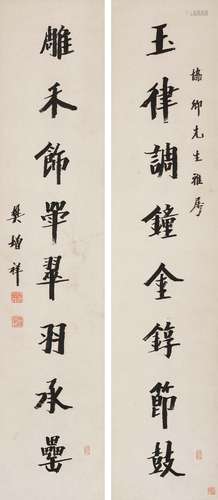 卿先生雅屬
玉律調鐘金錞節鼓
雕禾飾斝翠羽承罍
樊增祥